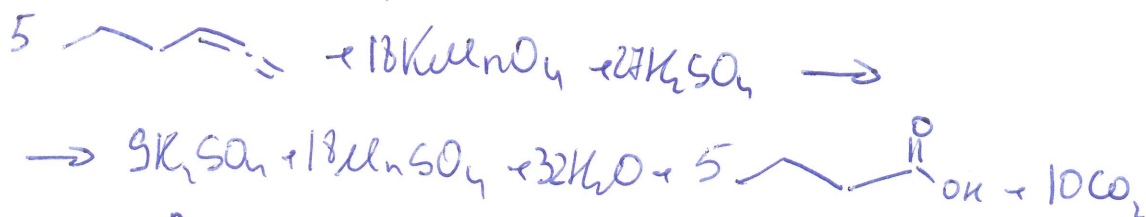 5 + 18KMnO₄ + 27H₂SO₄ →
→ 9K₂SO₄ + 18MnSO₄ + 32H₂O + 5 O OH + 10CO₂